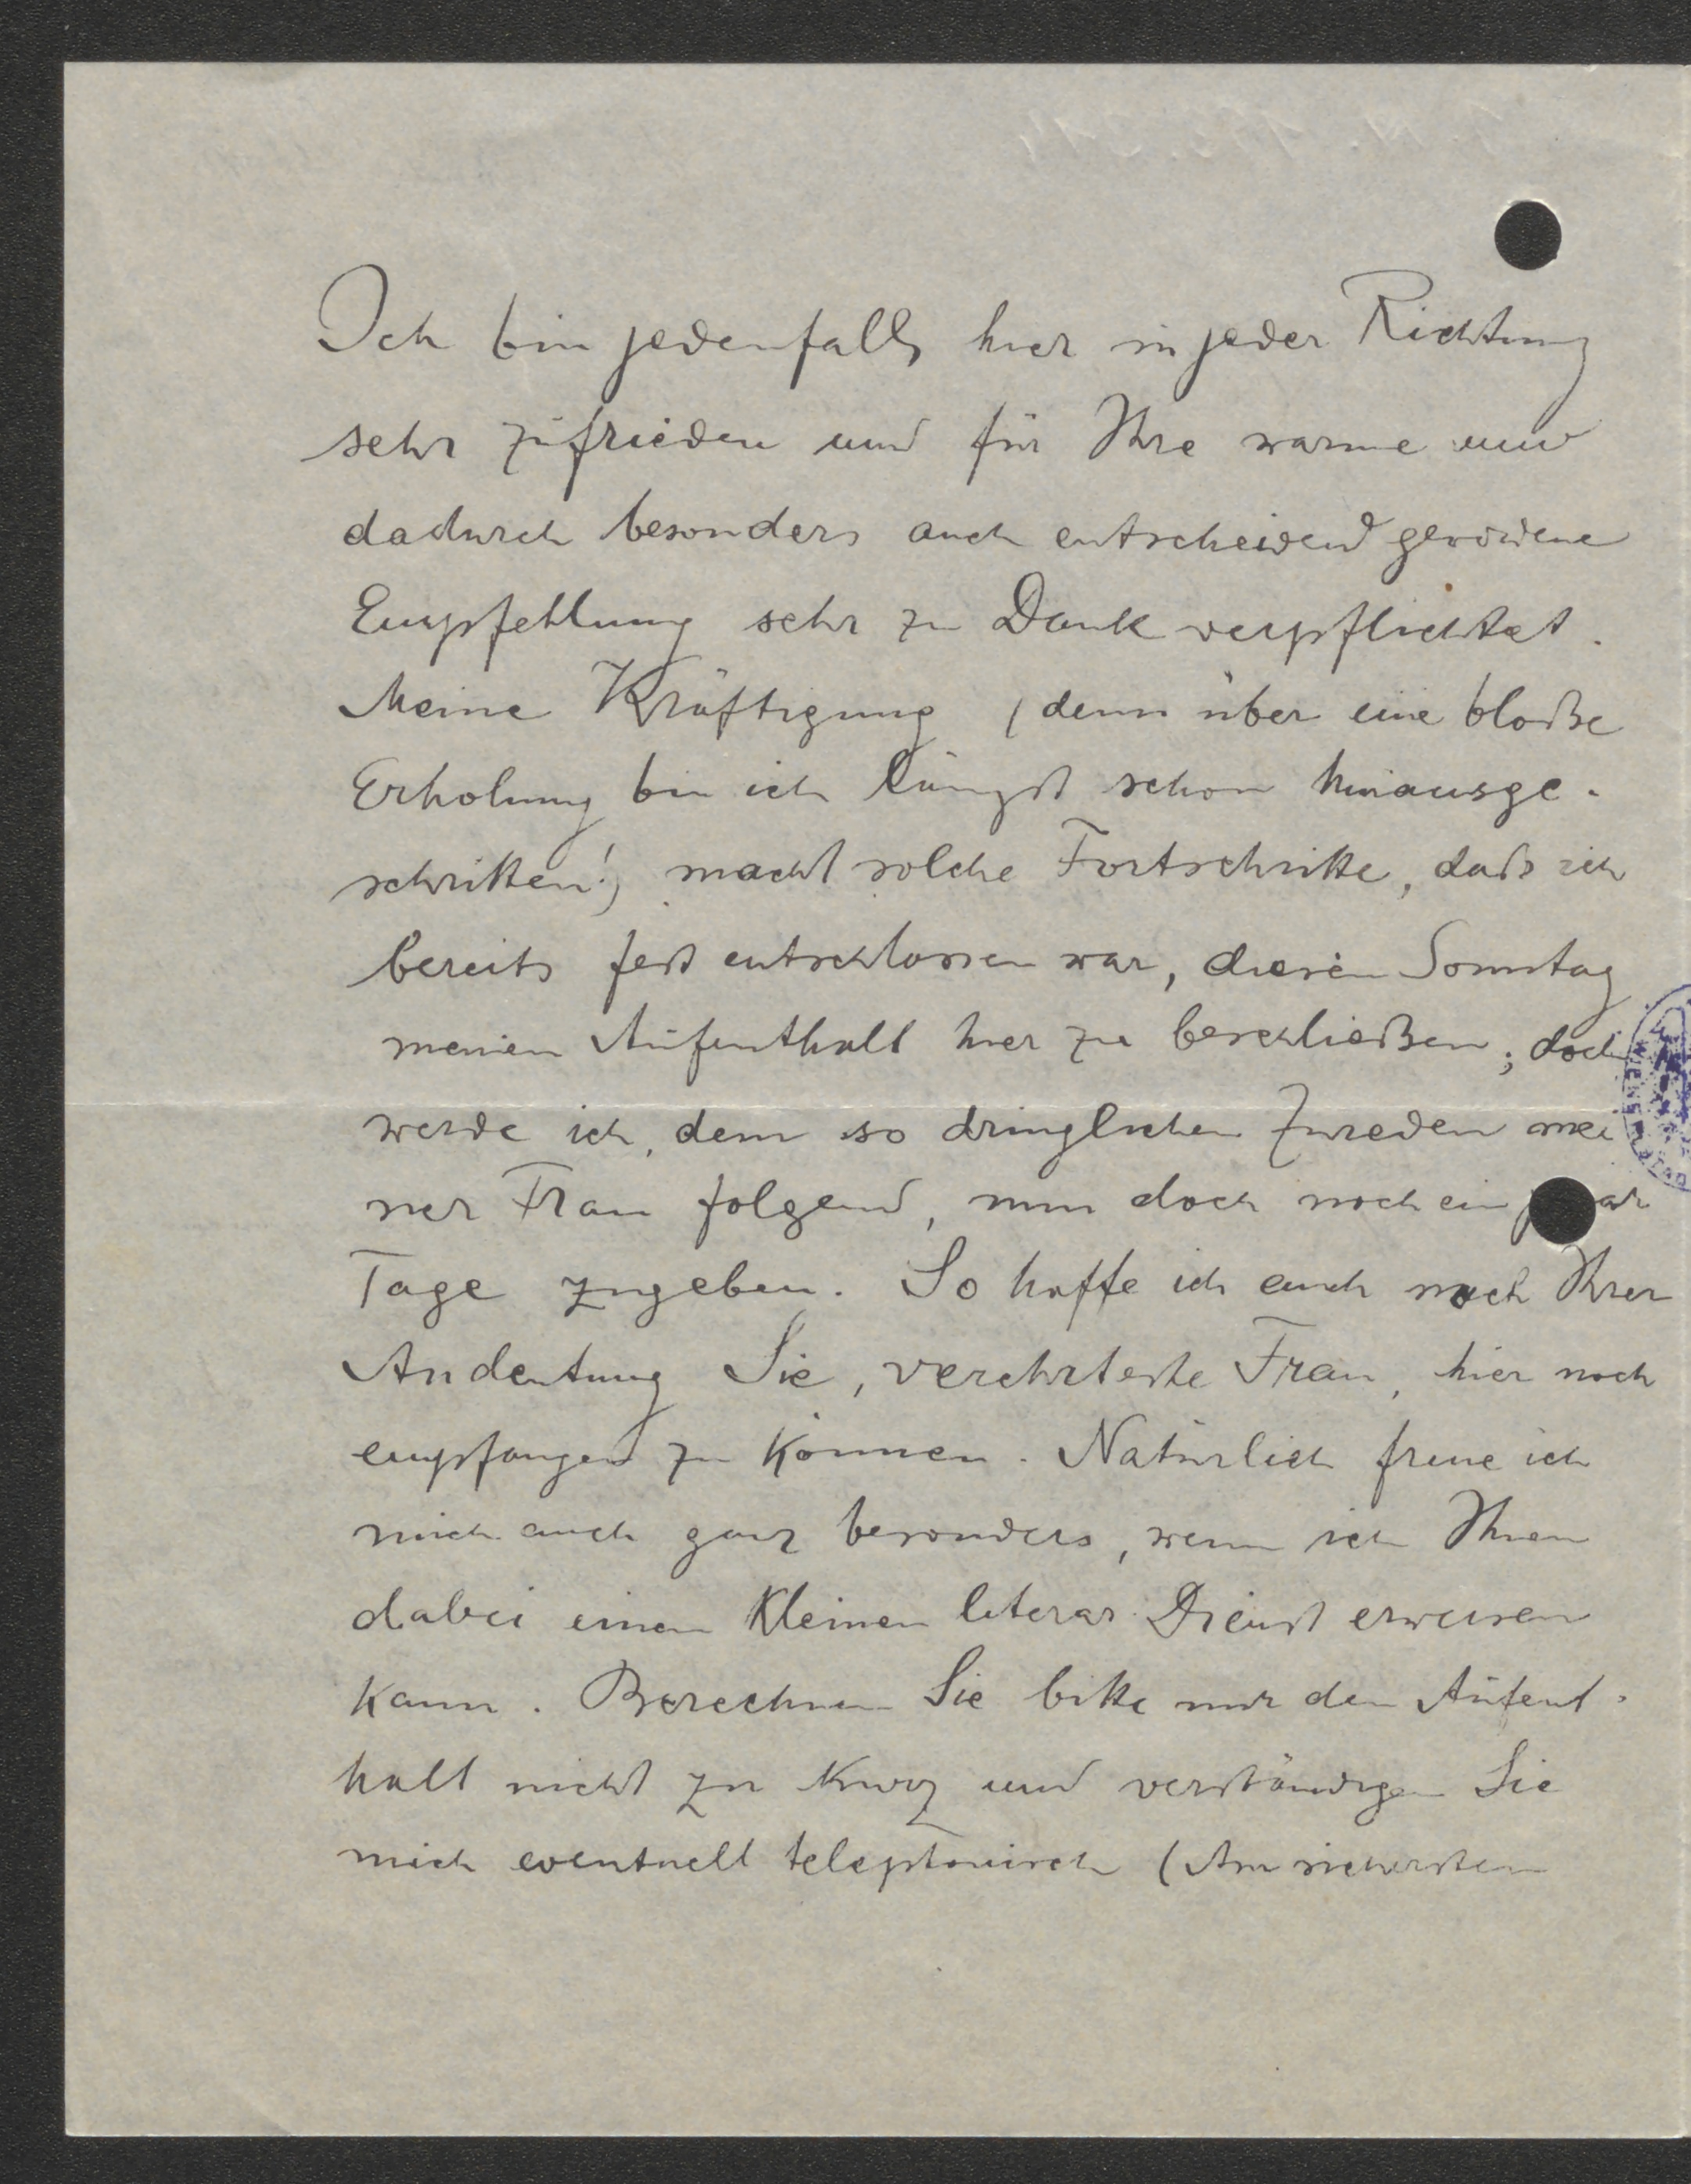 Ich bin jedenfalls hier in jeder Richtung
sehr zufrieden und für Ihre warme und
dadurch besonders auch entscheidend gewordene
Empfehlung sehr zu Dank verpflichtet.
Meine Kräftigung (denn über eine bloße
Erholung bin ich längst schon hinausge-
schritten!) macht solche Fortschritte, daß ich
bereits fest entschlossen war, diesen Sonntag
meinen Aufenthalt hier zu beschließen; doch
werde ich, dem so dringlichen Zureden mei
ner Frau folgend, nun doch noch ein paar
Tage zugeben. So hoffe ich auch nach Ihrer
Andeutung Sie, verehrteste Frau, hier noch
empfangen zu können. Natürlich freue ich
mich auch ganz besonders, wenn ich Ihnen
dabei einen kleinen literar. Dienst erweisen
kann. Berechnen Sie bitte nur den Aufent-
halt nicht zu kurz und verständigen Sie
mich eventuell telephonisch (Am sichersten